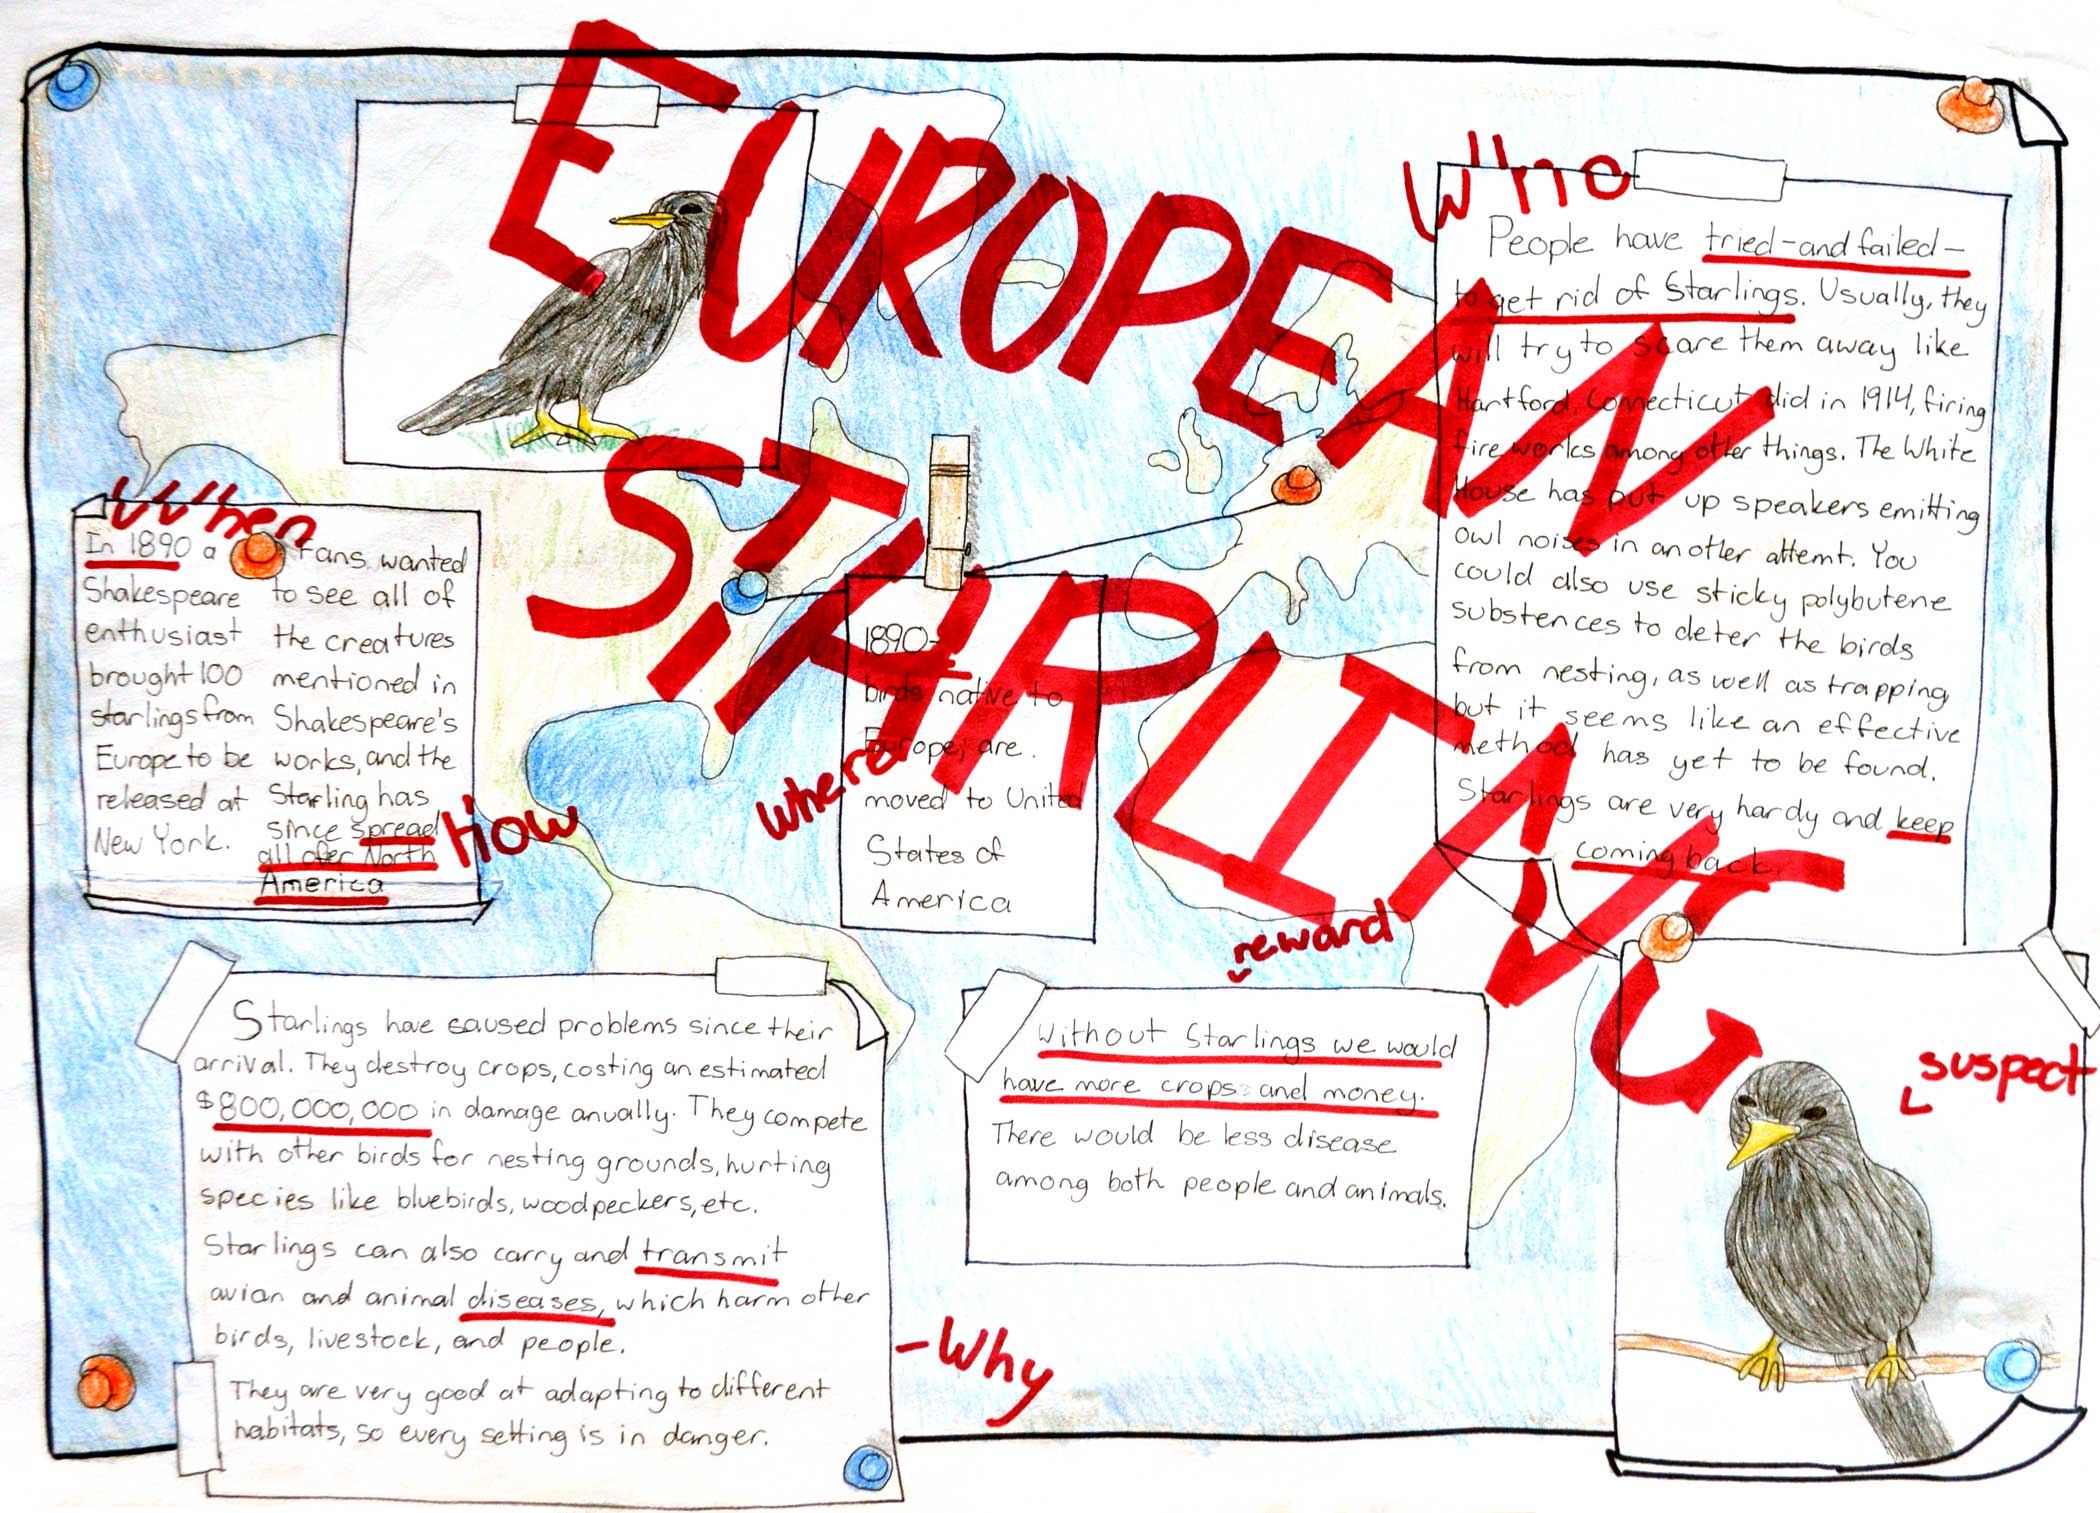 EUROPEAN
STARLING
When
In 1890 a
Shakespeare
enthusiast
brought 100
starlings from
Europe to be
released at
New York.
Fans wanted
to see all of
the creatures
mentioned in
Shakespeare's
works, and the
Starling has
since spread
all ofer North
America
How
where
1890-
birds native to
Europe, are
moved to United
States of
America
Who
People have tried-and failed-
to get rid of Starlings. Usually, they
will try to scare them away like
Hartford, Connecticut did in 1914, firing
fireworks among other things. The White
House has put up speakers emitting
owl noises in another attemt. You
could also use sticky polybutene
substences to deter the birds
from nesting, as well as trapping
but it seems like an effective
method has yet to be found.
Starlings are very hardy and keep
coming back.
Starlings have caused problems since their
arrival. They destroy crops, costing an estimated
$800,000,000 in damage anually. They compete
with other birds for nesting grounds, hurting
species like bluebirds, woodpeckers, etc.
Starlings can also carry and transmit
avian and animal diseases, which harm other
birds, livestock, and people.
They are very good at adapting to different
habitats, so every setting is in danger.
-Why
reward
Without Starlings we would
have more crops and money.
There would be less disease
among both people and animals.
suspect